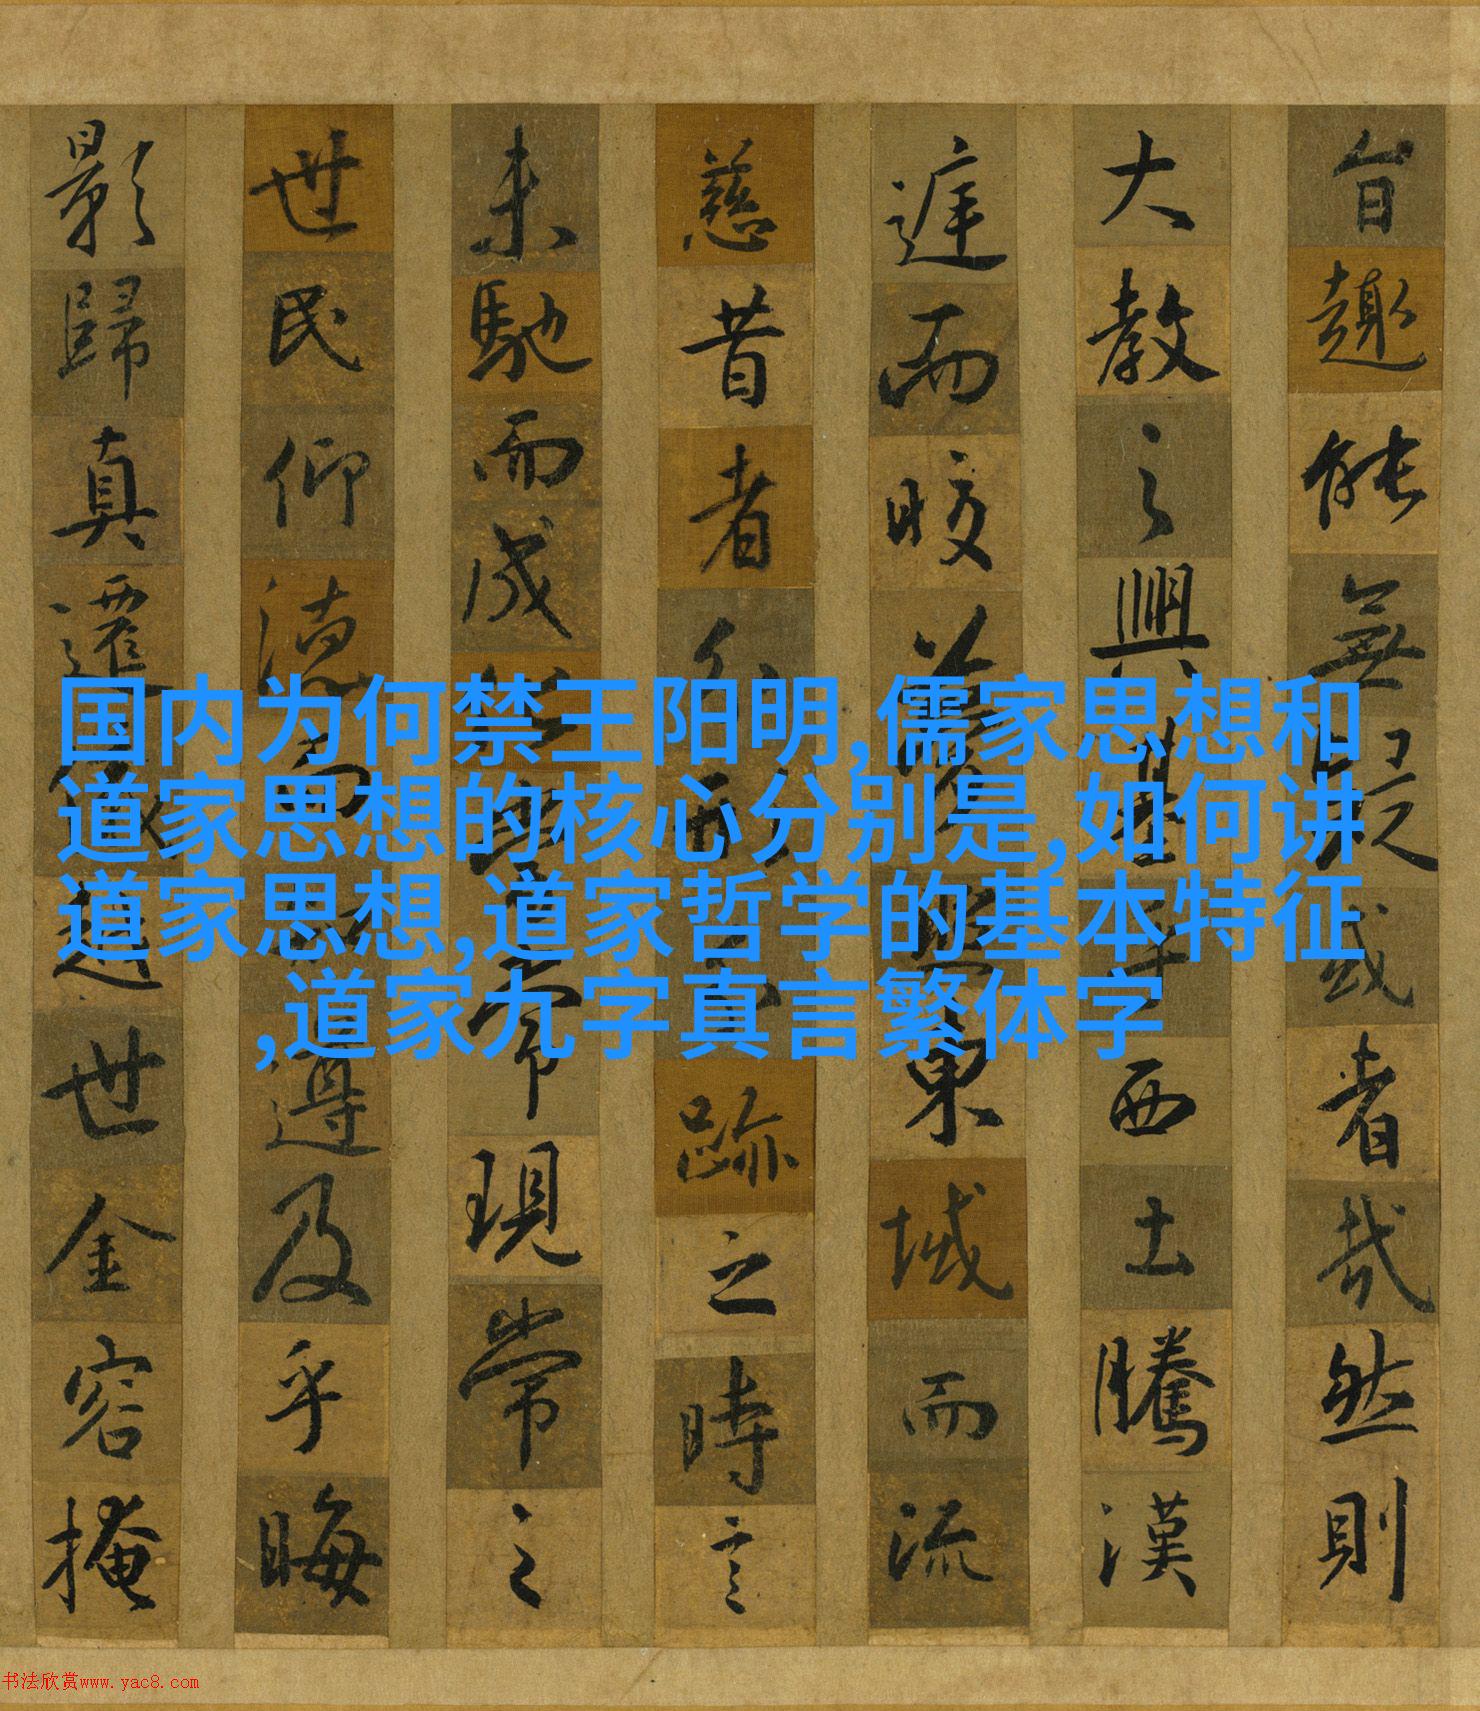 国内为何禁王阳明,儒家思想和
道家思想的核心分别是,如何讲
道家思想,道家哲学的基本特征
,道家九字真言繁体字
旨趣能無疑或者哉然則
大教之興基乎西土騰漢
庭而皎夢照東域而流
慈昔者分形分跡之時言
未馳而成化當常現常之
世民仰德而知遵及乎晦
影歸真遷儀越世金容掩
书法欣赏www.yac8.com